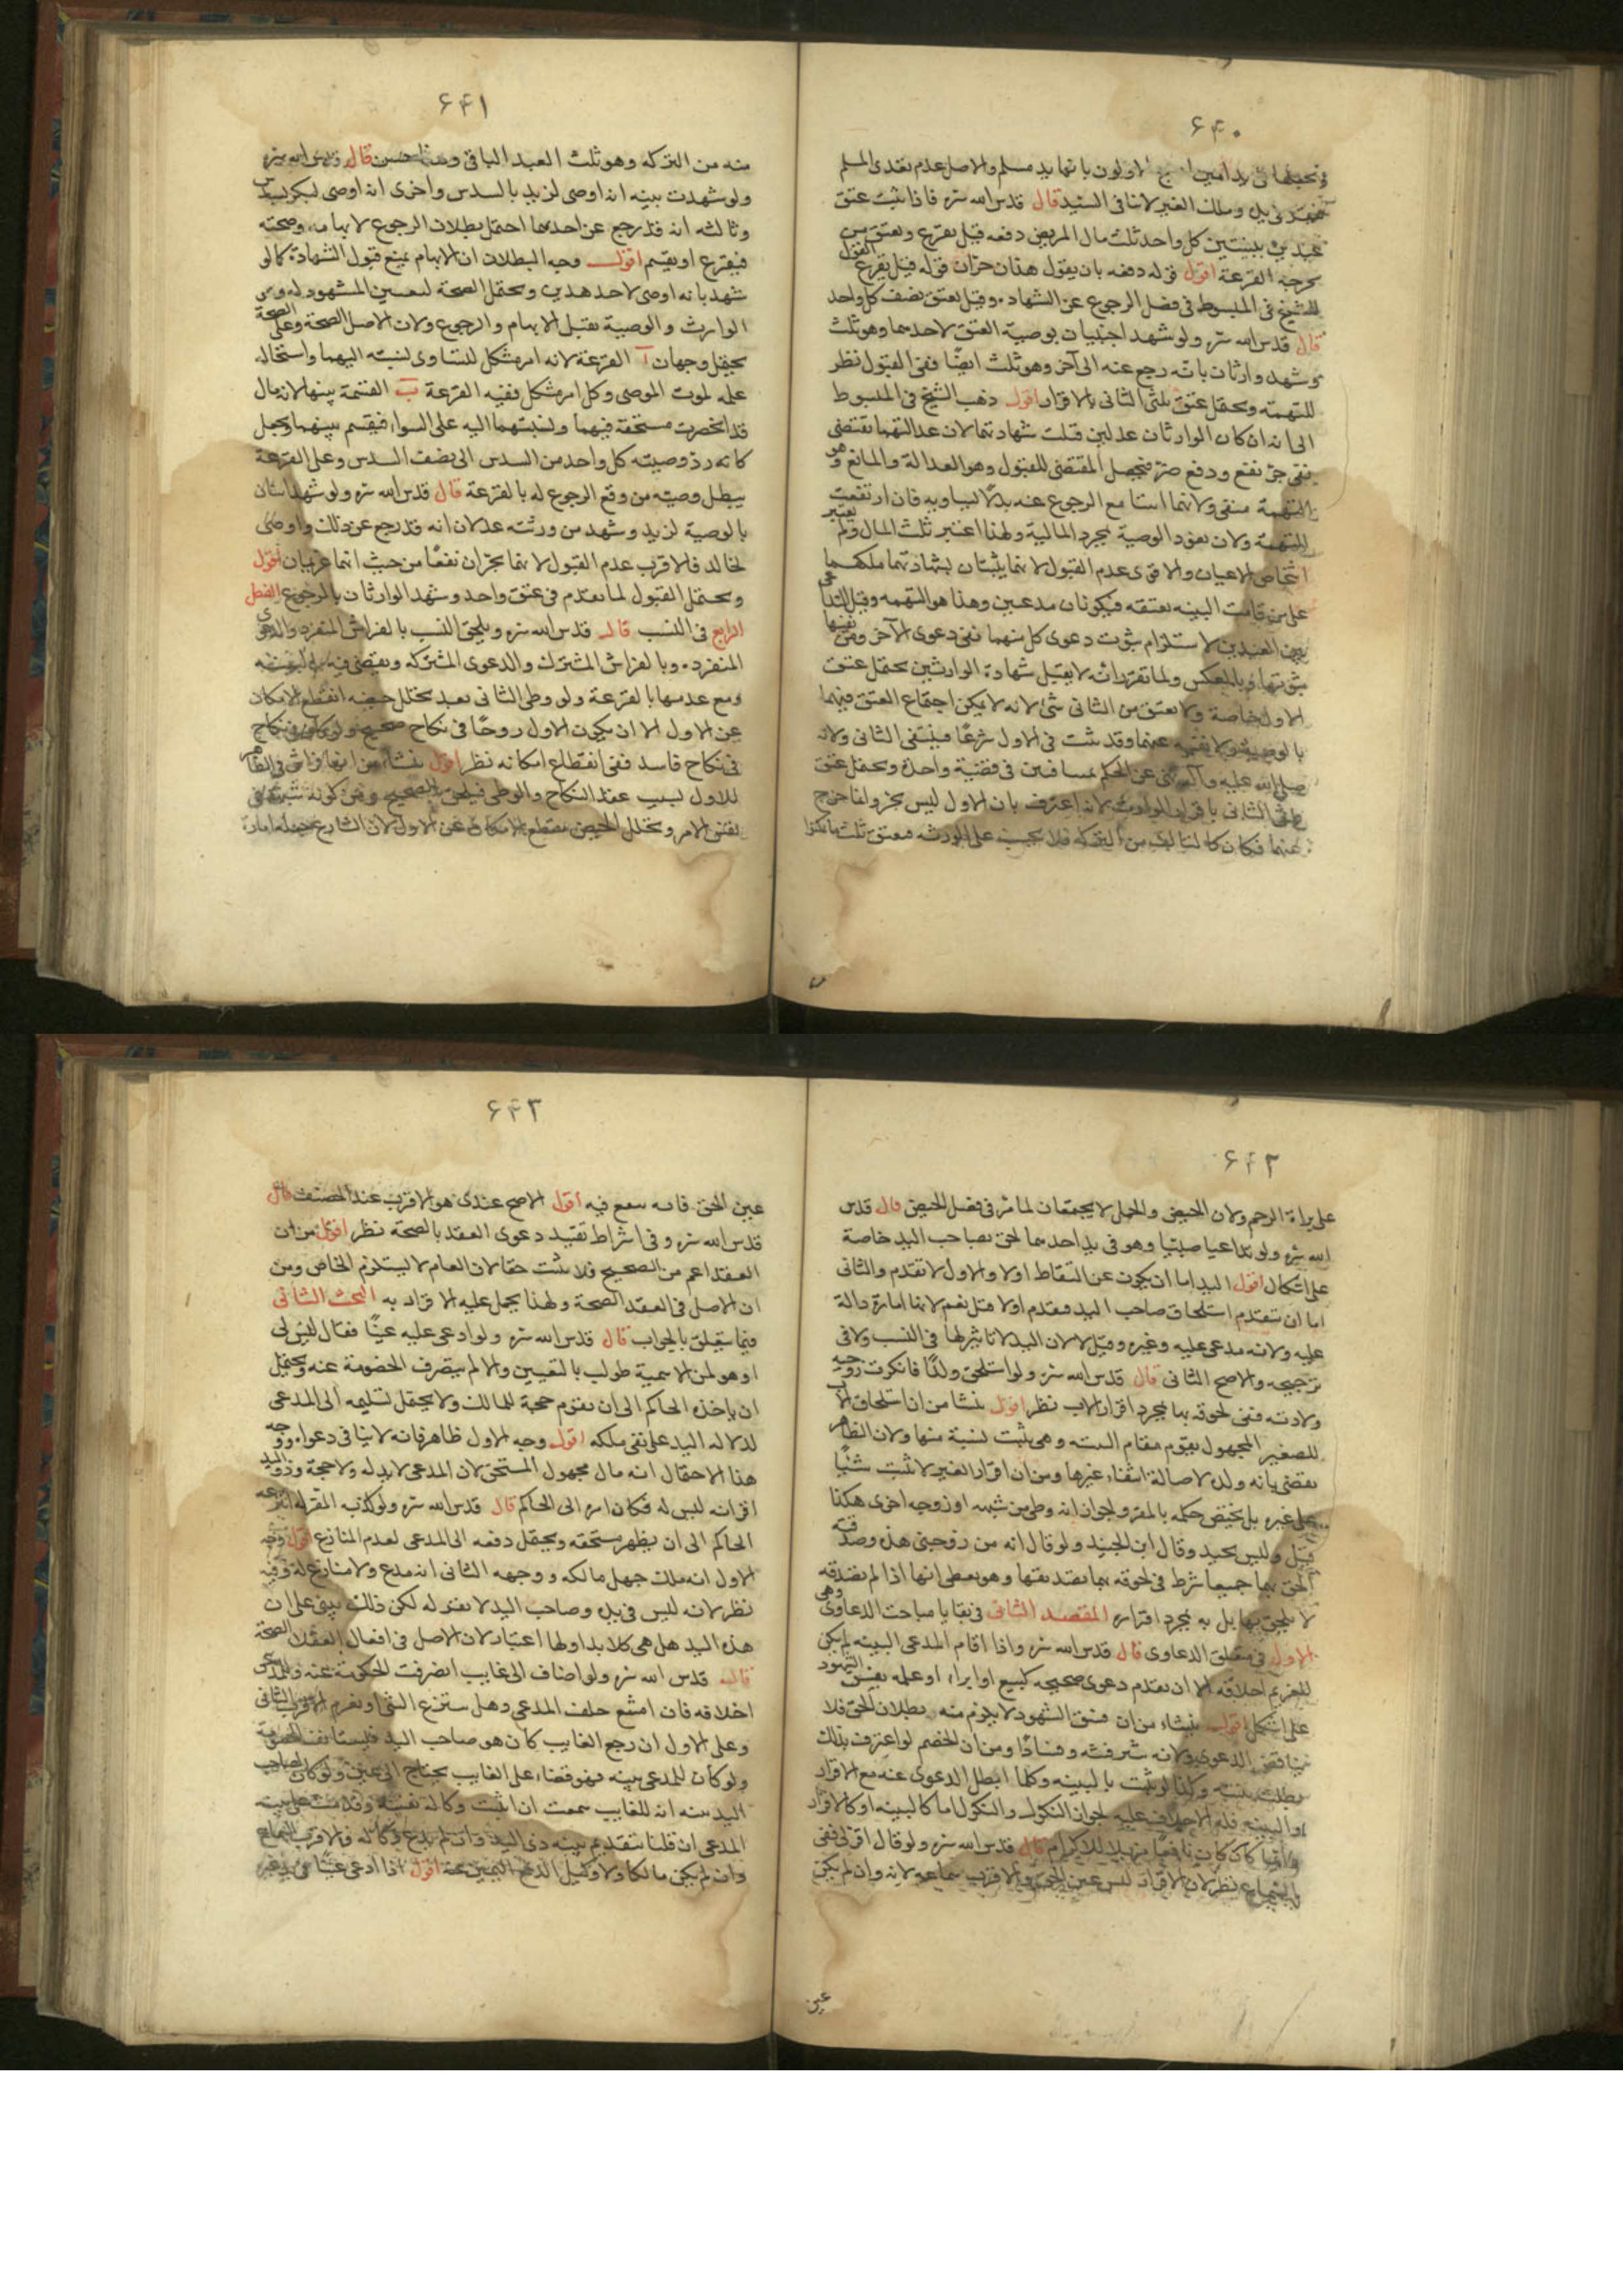 ۶۴۰
لاولون بانها يد مسلم والاصل عدم تعدى المسلم
وملك الغير لا ينافى السيد قال قدس الله سره فاذا ثبت عتق
عبدين ببينتين كل واحد ثلث مال المريض دفعه قيل يقرع ويعتق من
يخرجه القرعة اقول قوله دفعه بان يقول هذان حران قوله قيل يقرع القول
للشيخ فى المبسوط فى فصل الرجوع عن الشهادة وقيل يعتق نصف كل واحد
قال قدس الله سره ولو شهد اجنبيان بوصية العتق لاحدهما وهو ثلث
وشهد وارثان بانه رجع عنه الى آخر وهو ثلث ايضا ففى القبول نظر
للتهمة ويحتمل عتق ثلثى الثانى بالاقرار اقول ذهب الشيخ فى المبسوط
الى انه ان كان الوارثان عدلين قبلت شهادتهما لان عدالتهما تقتضى
نفى جر نفع ودفع ضرر فيحصل المقتضى للقبول وهو العدالة والمانع وهو
التهمة منتفى ولانهما اثبتا مع الرجوع عنه بدلا يساويه فان ارتفعت
التهمة ولان نفوذ الوصية بمجرد المالية ولهذا اعتبر ثلث المال ولم يعتبر
اشخاص الاعيان والاقوى عدم القبول لانهما يثبتان بشهادتهما ملكهما
على من قامت البينه بعتقه فيكونان مدعيين وهذا هو التهمه وقيل
بين العبدين لاستلزام ثبوت دعوى كل منهما نفى دعوى الآخر ومن نفيها
ثبوتها وبالعكس ولما تقرر انه لا يقبل شهادة الوارثين يحتمل عتق
الاول خاصة ولا يعتق من الثانى شئ لانه لا يمكن اجتماع العتق فيهما
بالوصية عنهما وقد ثبت فى الاول شرعا فينتفى الثانى ولانه
صلى الله عليه وآله نهى عن الحكم بمسافين فى قضية واحدة ويحتمل عتق
ثلثى الثانى باقرار الوارث لانه اعترف بان الاول ليس بحر وانما خرج
عنهما فكان كالتالف من التركه فلا يحسب على الورثه فيعتق ثلث
۶۴۱
منه من التركه وهو ثلث العبد الباقى وهذا حسن قال قدس الله سره
ولو شهدت بينه انه اوصى لزيد بالسدس واخرى انه اوصى لبكر بسدس
وثالثه انه قد رجع عن احدهما احتمل بطلان الرجوع لابهامه وصحته
فيقرع او يقسم اقول وجه البطلان ان الابهام يمنع قبول الشهادة كما لو
شهد بانه اوصى لاحد هذين ويحتمل الصحة لتعيين المشهود له وهو
الوارث والوصية تقبل الابهام والرجوع ولان الاصل الصحة وعلى الصحة
يحتمل وجهان آ القرعة لانه امر مشكل لتساوى نسبته اليهما واستحالة
علمه لموت الموصى وكل امر مشكل ففيه القرعة ب القسمة بينهما لانه مال
قد انحصرت مستحقه فيهما ونسبتهما اليه على السواء فيقسم بينهما ويجعل
كانه رد وصيته كل واحد من السدس الى نصف السدس وعلى القرعة
يبطل وصيته من وقع الرجوع له بالقرعة قال قدس الله سره ولو شهد اثنان
بالوصية لزيد وشهد من ورثته عدلان انه قد رجع عن ذلك واوصى
لخالد فالاقرب عدم القبول لانهما يجران نفعا من حيث انهما غريمان اقول
ويحتمل القبول لما تقدم فى عتق واحد وشهد الوارثان بالرجوع الفصل
الرابع فى النسب قال قدس الله سره ويلحق النسب بالفراش المنفرد والدعوى
المنفرده وبالفراش المشترك والدعوى المشتركه ويقضى فيه بالبينه
ومع عدمها بالقرعة ولو وطئ الثانى بعد تخلل حيضه انقطع الامكان
عن الاول الا ان يكون الاول زوجا فى نكاح صحيح ولو كان فى نكاح
فى نكاح فاسد ففى انقطاع امكانه نظر اقول ينشأ من انها فراش فى الظاهر
للاول بسبب عقد النكاح والوطى فيلحق بالصحيح ومن كونه
نفس الامر وتخلل الحيض يقطع الامكان عن الاول لان الشارع جعله امارة
۶۴۲
على براءة الرحم ولان الحيض والحمل لا يجتمعان لما مر فى فصل الحيض قال قدس
الله سره ولو تداعيا صبيا وهو فى يد احدهما لحق بصاحب اليد خاصة
على اشكال اقول اليد اما ان يكون عن التقاط اولا والاول لا تقدم والثانى
اما ان يتقدم استلحاق صاحب اليد فيقدم اولا قيل نعم لانها امارة دالة
عليه ولانه مدعى عليه وغيره وقيل لا لان اليد لا تاثير لها فى النسب ولا فى
ترجيحه والاصح الثانى قال قدس الله سره ولو استلحق ولدا فانكرت زوجته
ولادته ففى لحوقه بها بمجرد اقرار الاب نظر اقول ينشا من ان استلحاق الاب
للصغير المجهول يقوم مقام البينه وهى يثبت نسبة منها ولان الظاهر
يقضى بانه ولدها لاصالة انتفاء غيرها ومن ان اقرار الغير لا يثبت شيئا
على غيره بل يختص حكمه بالمقر ولجواز انه وطئ من شبهه او زوجه اخرى هكذا
قيل وليس بجيد وقال ابن الجنيد ولو قال انه من زوجتى هذه وصدقته
لحق بهما جميعا شرط فى لحوقه بها تصديقها وهو يعطى انها اذا لم تصدقه
لا يلحق بها بل به بمجرد اقراره المقصد الثانى فى بقايا مباحث الدعاوى وهى
الاول فى متعلق الدعاوى قال قدس الله سره واذا اقام المدعى البينه لم يكن
للغريم احلافه الا ان يقدم دعوى صحيحه كبيع او ابراء او علمه بفسق الشهود
على اشكال اقول ينشاء من ان فسق الشهود لا يلزم منه بطلان الحق فلا
ينافى الدعوى ولانه وفسادا ومن ان الخصم لو اعترف بذلك
بطلت بينته وكلما لو ثبت بالبينه وكلما ابطل الدعوى عنه مع الاقرار
او البينه فله الاحلاف عليه لجواز النكول والنكول اما كالبينه او كالاقرار
وايهما كان كان نافعا قال قدس الله سره ولو قال اقر لى ففى
السماع نظر لان الاقرار ليس عين الحق والاقرب سماعه لانه وان لم يكن
عين
۶۴۳
عين الحق فانه ينفع فيه اقول الاصح عندى هو الاقرب عند المصنف قال
قدس الله سره وفى اشتراط تقييد دعوى العقد بالصحة نظر اقول من ان
العقد اعم من الصحيح فلا يثبت حقا لان العام لا يستلزم الخاص ومن
ان الاصل فى العقد الصحة ولهذا يحمل عليه الاقرار به البحث الثانى
فيما يتعلق بالجواب قال قدس الله سره ولو ادعى عليه عينا فقال ليس لى
او هو لمن لا اسميه طولب بالتعيين والا لم ينصرف الخصومة عنه ويحتمل
ان ياخذه الحاكم الى ان تقوم حجة للمالك ولا يحتمل تسليمه الى المدعى
لدلالة اليد على نفى ملكه اقول وجه الاول ظاهر فانه لا ينافى دعواه ووجه
هذا الاحتمال انه مال مجهول المستحق لان المدعى لا يد له ولا حجة وذو اليد
اقر انه ليس له فكان امره الى الحاكم قال قدس الله سره ولو كذب المقر له انتزعه
الحاكم الى ان يظهر مستحقه ويحتمل دفعه الى المدعى لعدم المنازع اقول وجه
الاول انه ملك جهل مالكه ووجهه الثانى انه مدع ولا منازع له وفيه
نظر لانه ليس فى يده وصاحب اليد لا يقر له لكن ذلك يبنى على ان
هذه اليد هل هى كلا يد او لها اعتبار لان الاصل فى افعال العقلاء الصحة
قال قدس الله سره ولو اضاف الى غايب انصرفت الحكومة عنه وللمدعى
احلافه فان امتنع حلف المدعى وهل ينتزع الشئ او يغرم الاقرب الثانى
وعلى الاول ان رجع الغايب كان هو صاحب اليد فليستانف الخصومة
ولو كان للمدعى بينه فهو قضاء على الغايب يحتاج الى يمين ولو كان لصاحب
اليد بينه انه للغايب سمعت ان اثبت وكالة نفسه وقدمت على بينه
المدعى ان قلنا بتقديم بينه ذى اليد وان لم يدع وكالة فالاقرب السماع
وان لم يكن مالكا ولا وكيل الدفع اليمين عنه اقول اذا ادعى عينا فى يد غيره